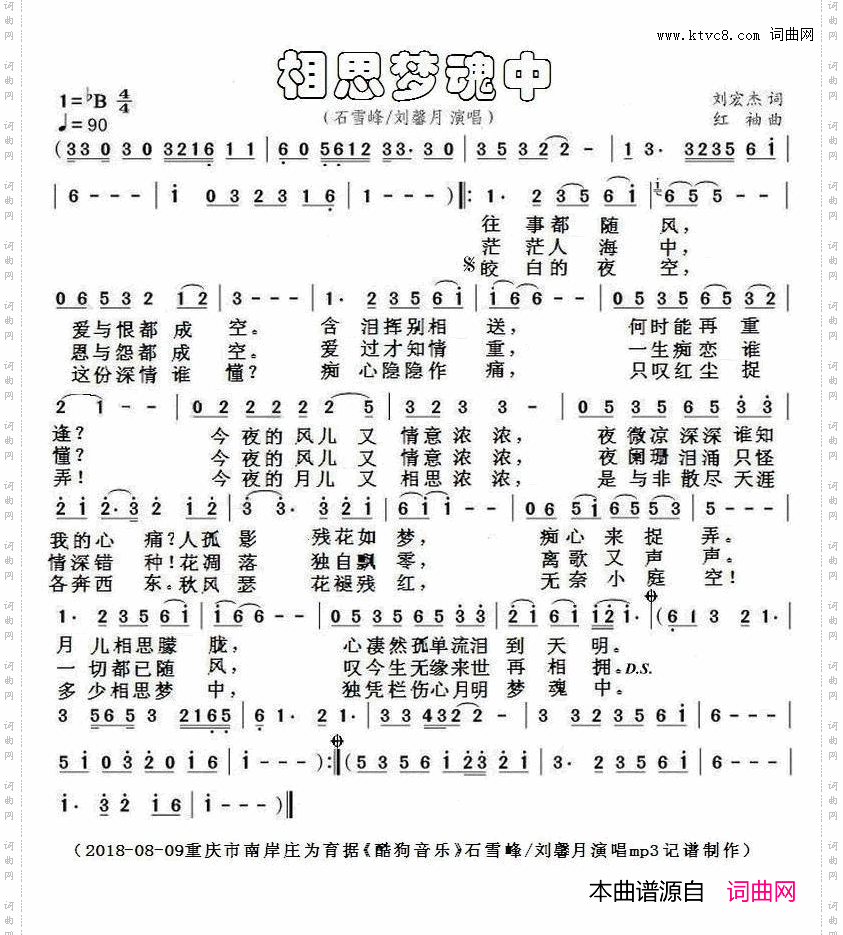 www.ktvc8.com 词曲网
相思梦魂中
1=♭B 4/4
♩=90
(石雪峰/刘馨月 演唱)
刘宏杰 词
红 袖 曲
(330 30 32161 1 | 60 5612 33·30 | 35322- | 13· 323561 |
6--- | i 032316 | 1---)‖: 1· 23561 | 1655-- |
往 事都 随 风,
茫 茫人 海 中,
皎 白的 夜 空,
06532 12 | 3--- | 1· 23561 | i66-- | 05356532 |
爱与恨都 成 空。 含 泪挥别相 送, 何时能再 重
恩与怨都 成 空。 爱 过才知情 重, 一生痴恋 谁
这份深情谁 懂? 痴 心隐隐作 痛, 只叹红尘 捉
21-- | 0222225 | 3233- | 05356533 |
逢? 今夜的风儿又 情意浓浓, 夜微凉深深谁知
懂? 今夜的风儿又 情意浓浓, 夜阑珊泪涌只怪
弄! 今夜的月儿又 相思浓浓, 是与非散尽天涯
2i2·32 i2 | 33·32i | 6ii-- | 06516553 | 5--- |
我的心 痛?人孤 影 残花如 梦, 痴心来捉 弄。
情深错 种!花凋 落 独自飘 零, 离歌又声 声。
各奔西 东。秋风 瑟 花褪残 红, 无奈小庭 空!
1· 23561 | i66-- | 05356533 | 2i6i i2i· | (613 21· |
月 儿相思朦 胧, 心凄然孤单流泪 到 天 明。
一 切都已随 风, 叹今生无缘来世 再 相 拥。D.S.
多 少相思梦 中, 独凭栏伤心月明 梦 魂 中。
3 565 3 2165 | 61· 21· | 334322- | 3 323561 | 6--- |
5i03206 | i---):‖(5356i23i | 3·23561 | 6--- |
i·32i6 | i---)‖
(2018-08-09重庆市南岸庄为育据《酷狗音乐》石雪峰/刘馨月演唱mp3记谱制作)
本曲谱源自 词曲网